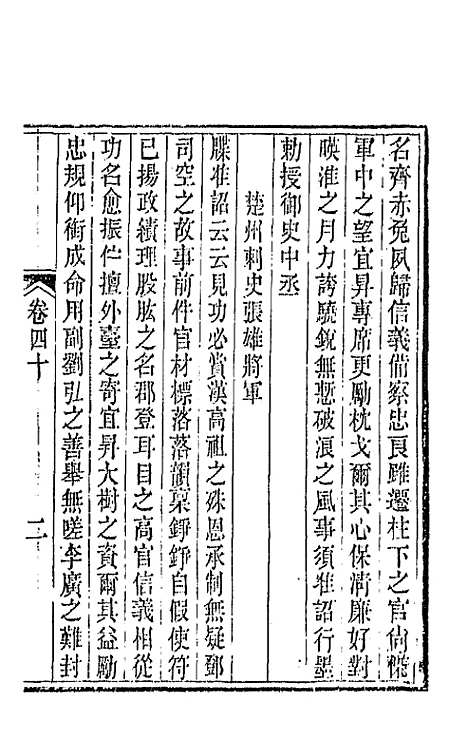 名齊赤兔夙歸信義備察忠良雖遷柱下之官尚愜
軍中之望宜昇專席更勵枕戈爾其心保清廉好對
暎淮之月力誇驍銳無慙破浪之風事須准詔行墨
勅授御史中丞
楚州刺史張雄將軍
牒准詔云云見功必賞漢高祖之殊恩承制無疑鄧
司空之故事前件官材標落落韻稟錚錚自假使符
已揚政績理股肱之名郡登耳目之高官信義相從
功名愈振佇擅外臺之寄宜昇大樹之資爾其益勵
忠規仰銜成命用副劉弘之善舉無嗟李廣之難封
卷四十
二